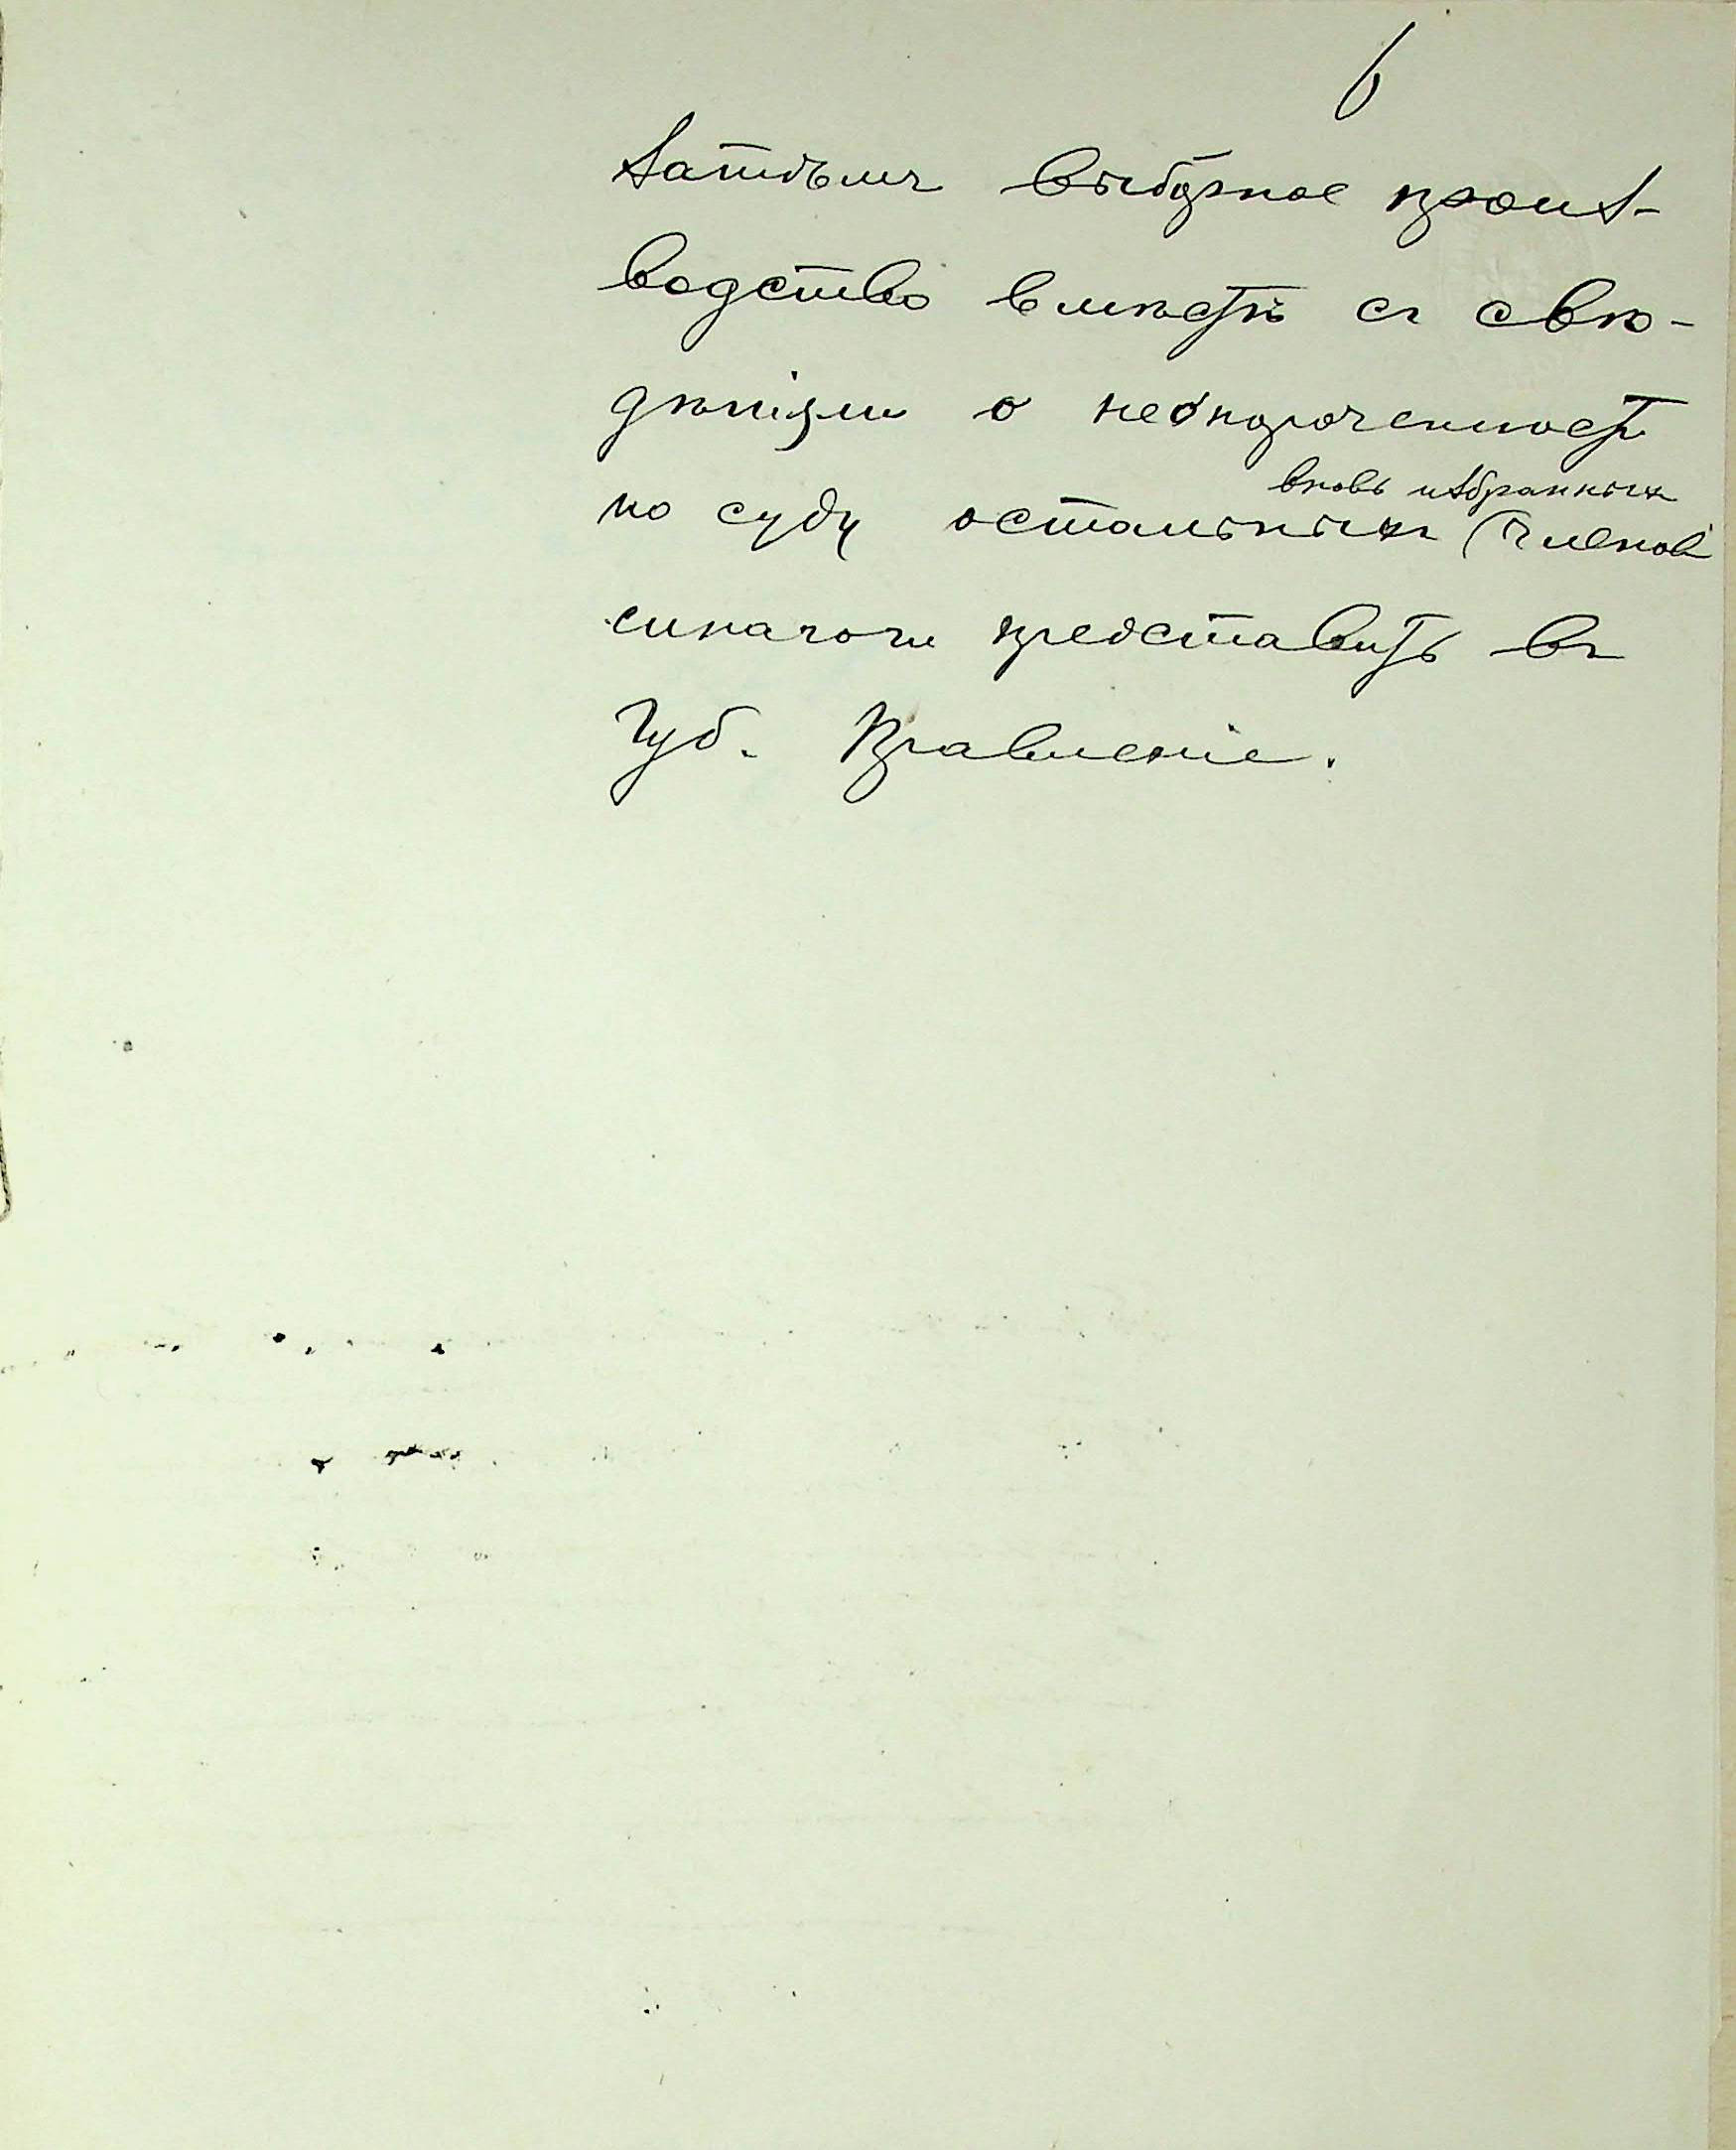 6
Затѣмъ выборное произ-
водство вмѣстѣ съ свѣ-
дѣніями о неопороченности
вновь избранныхъ
по суду остальныхъ членовъ
синагоги представить въ
Губ. Правленіе.